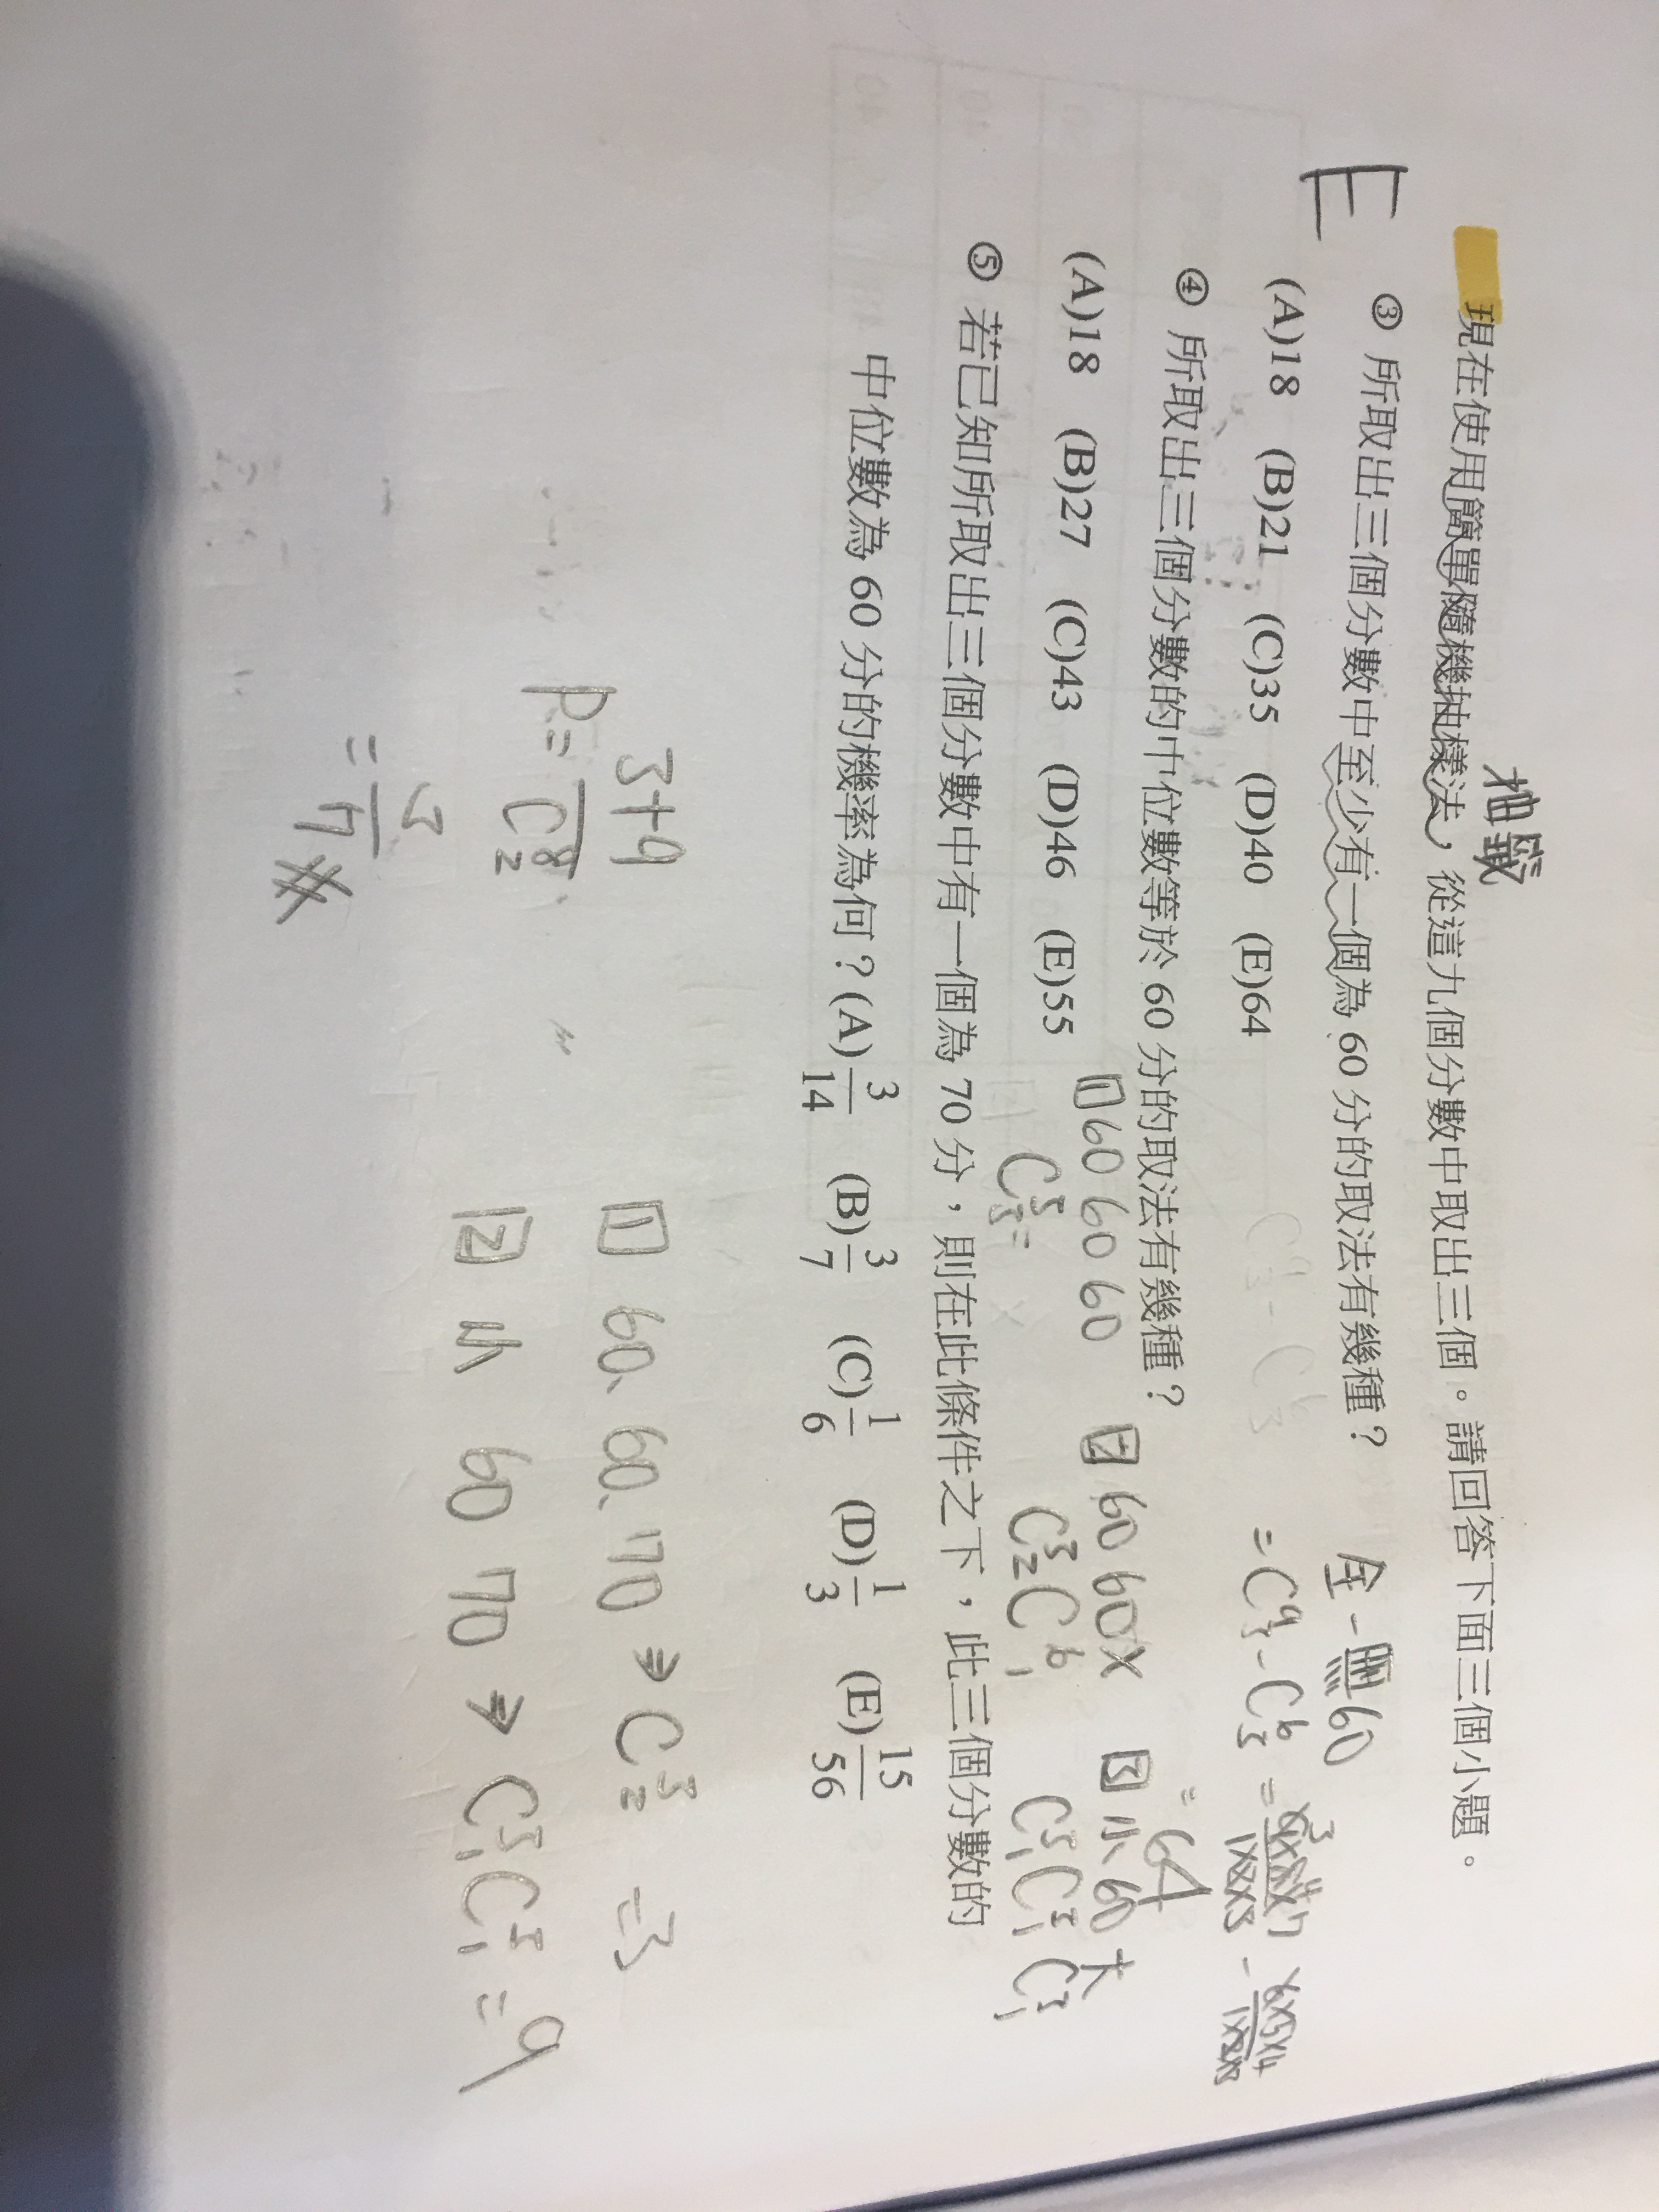 抽籤
現在使用簡單隨機抽樣法，從這九個分數中取出三個。請回答下面三個小題。
E
③ 所取出三個分數中至少有一個為 60 分的取法有幾種？ 全-無60
(A)18 (B)21 (C)35 (D)40 (E)64 =C⁹₃-C⁶₃ =
=64
④ 所取出三個分數的中位數等於 60 分的取法有幾種？
1 60 60 60 2 60 60 X 3 小 60 大
(A)18 (B)27 (C)43 (D)46 (E)55 C³₃= C³₂C⁶₁ C³₁C³₁C³₁
⑤ 若已知所取出三個分數中有一個為 70 分，則在此條件之下，此三個分數的
中位數為 60 分的機率為何？(A)3/14 (B)3/7 (C)1/6 (D)1/3 (E)15/56
1 60、60、70 ⇒ C³₂ =3
P= 3+9/C⁸₂
2 小 60 70 ⇒ C³₁C³₁ =9
=3/7